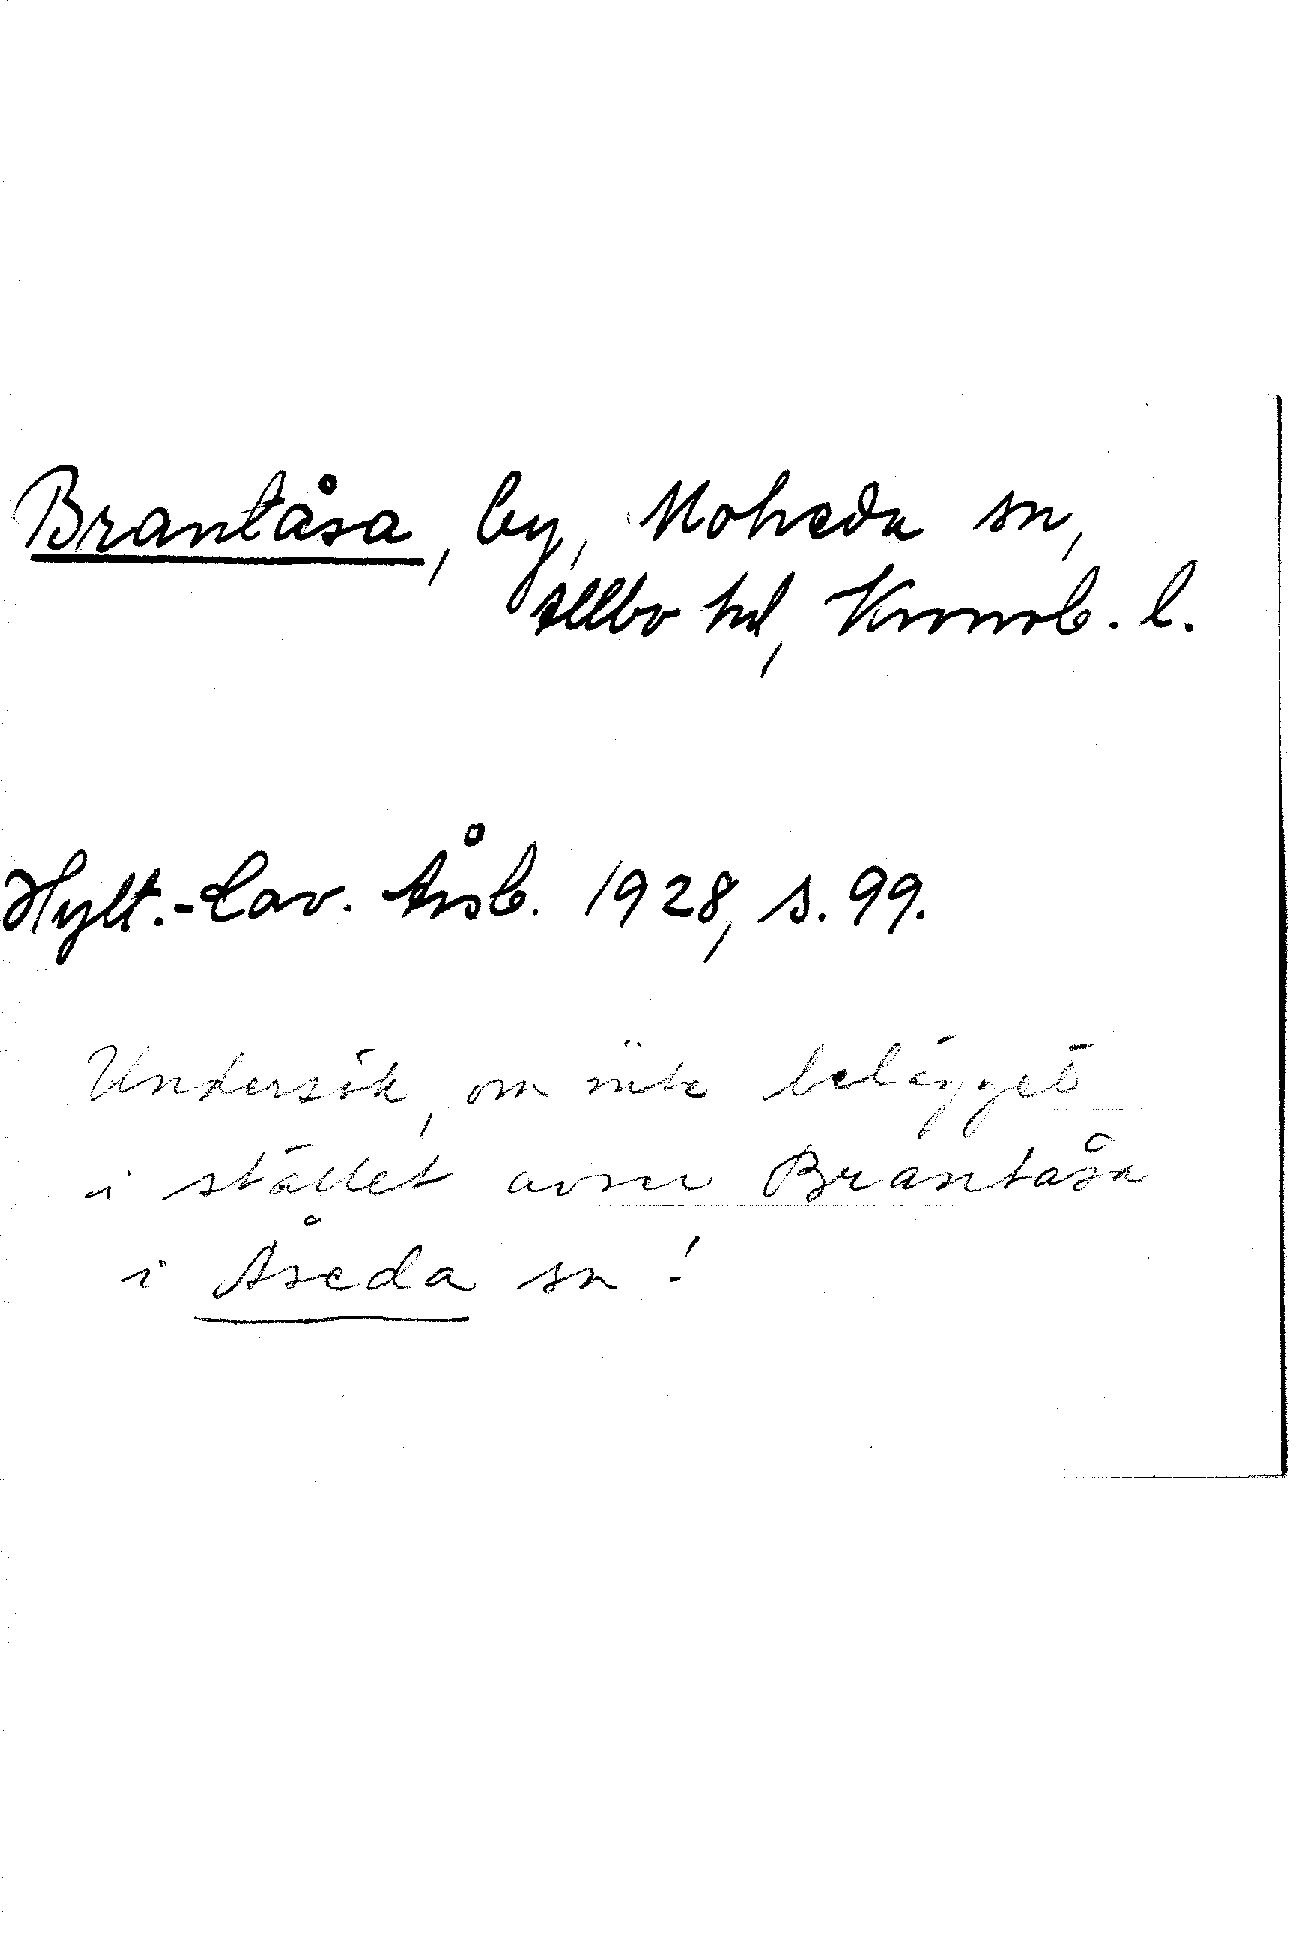 Brantåsa, by, Moheda sn,
Allbo hd, Kronob. l.
Hylt.-Cav. Årsb. 1928, s. 99.
Undersök, om inte belägget
i stället avser Brantåsa
i Åseda sn!